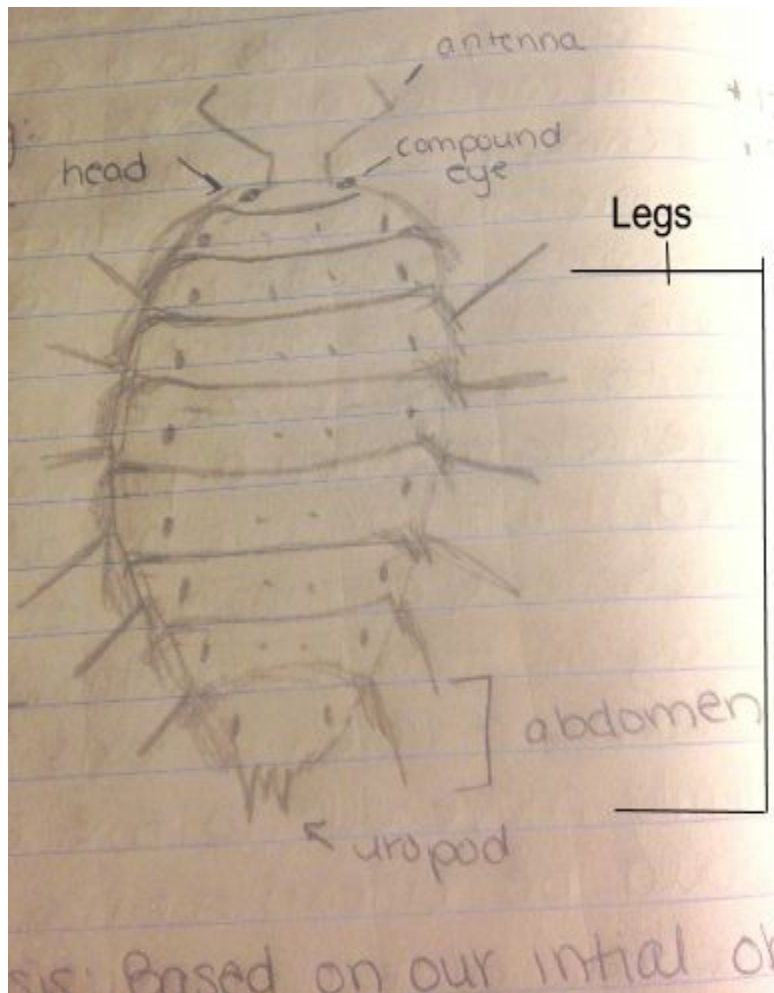 antenna
compound
eye
head
Legs
abdomen
uropod
sis: Based on our intial